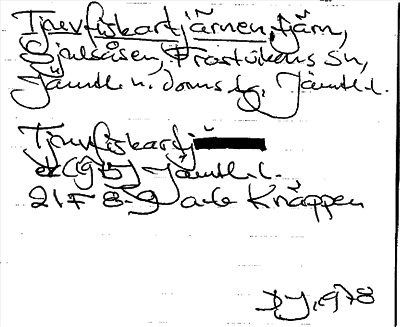 Tjuvfiskartjärnen, tjärn,
Gjulsåsen, Frostvikens sn,
Jämtl. n. doms.lg, Jämtl. l.
Tjuvfiskartj
Jämtl. l.
21F 8-9 a-b Knäppen
1978